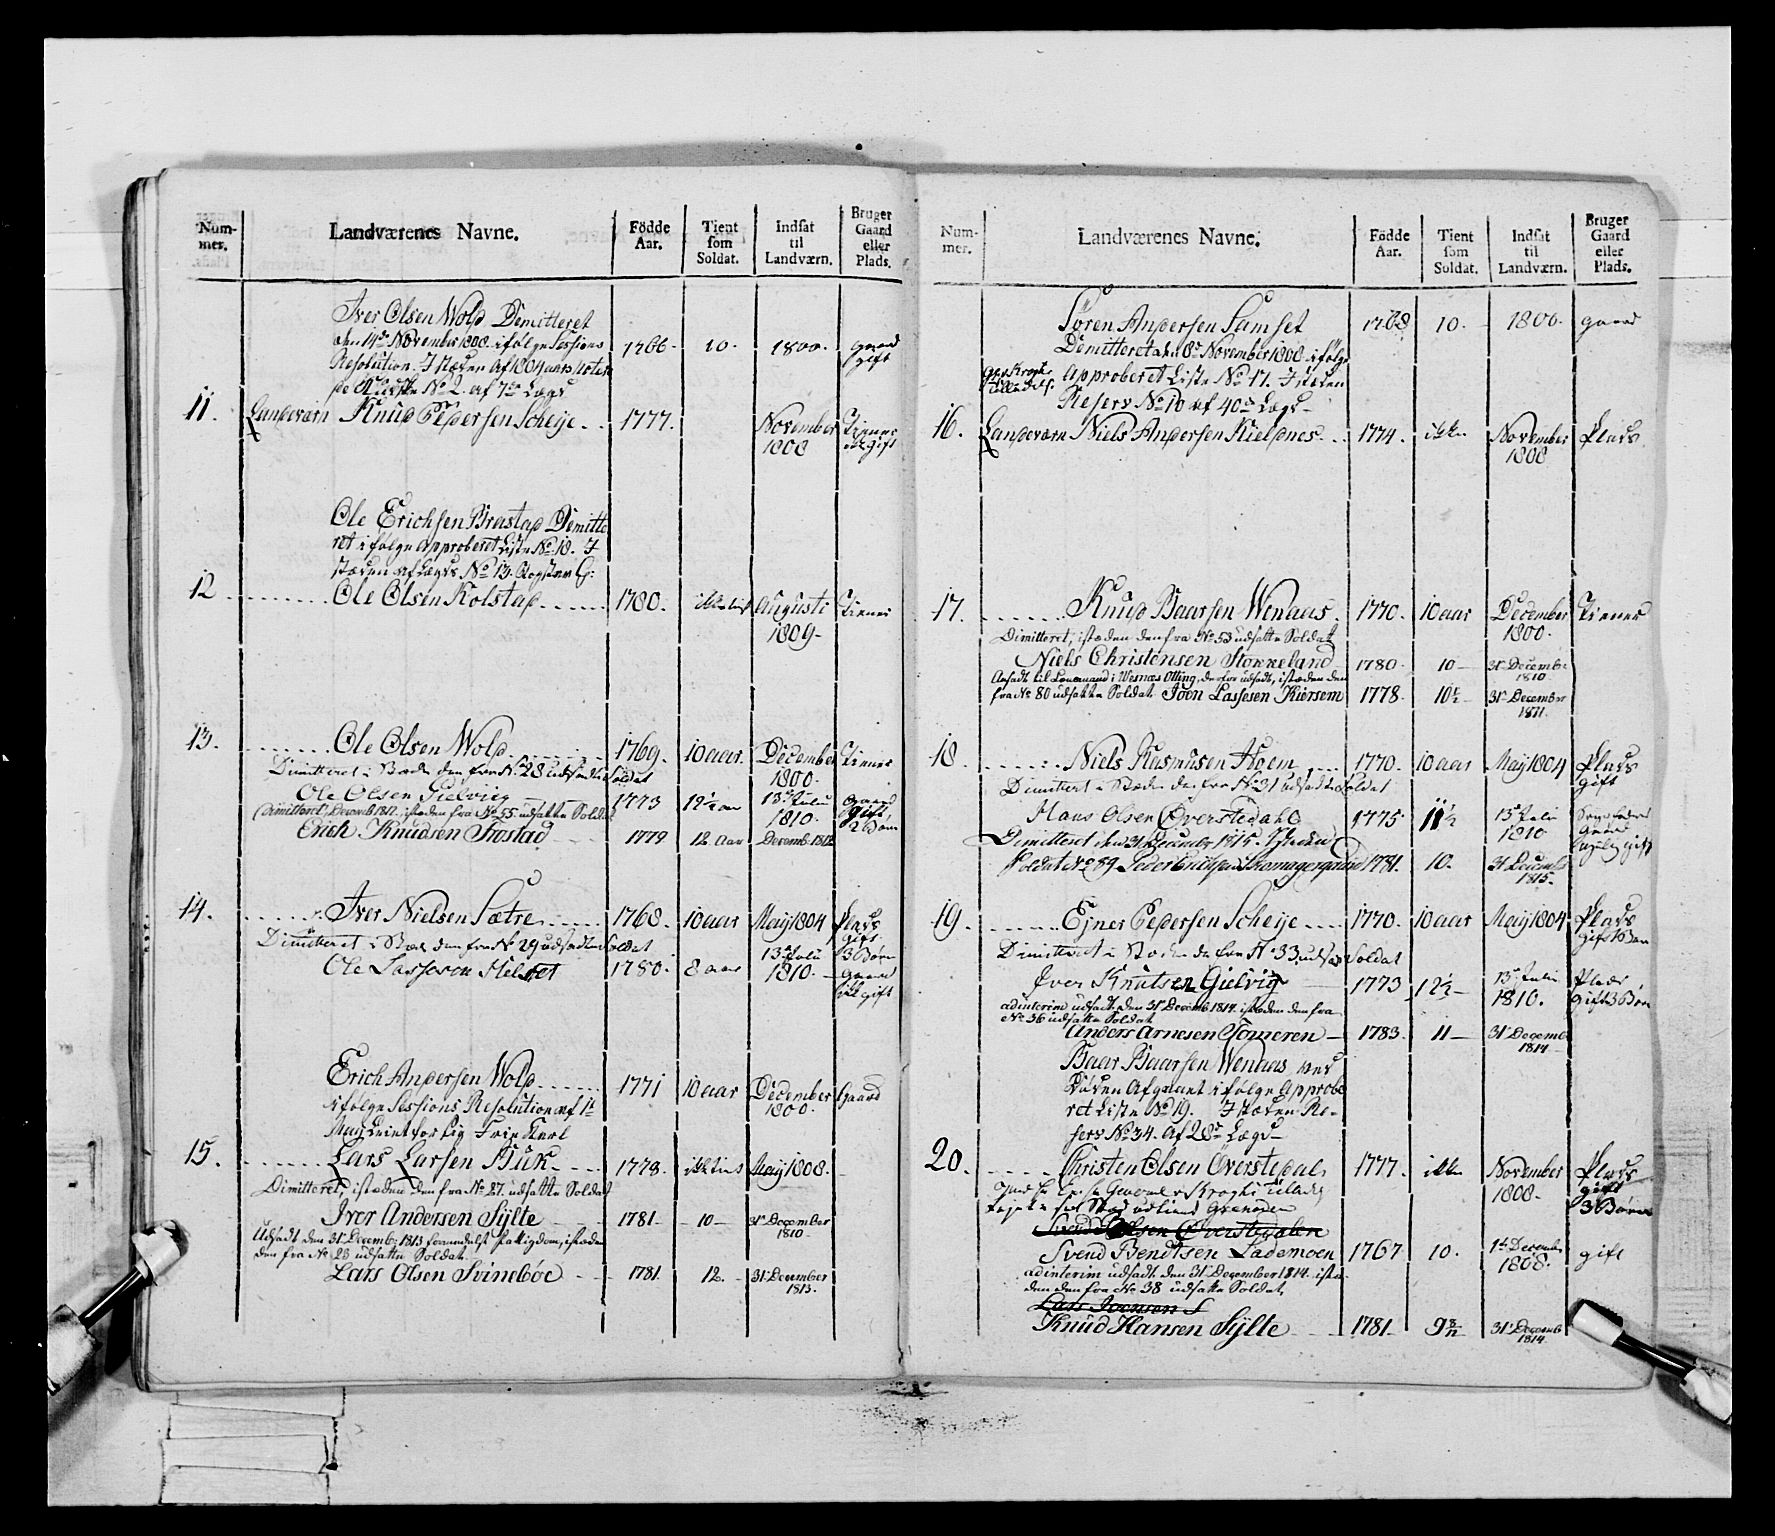 Num-
mer.
Landværenes Navne.
Födde
Aar.
Tient
som
Soldat.
Indsat
til
Landværn.
Bruger
Gaard
eller
Plads.
Iver Olsen Wold Demitteret
den 14de November 1808 ifölge Sessions
Resolution. I stæden Af 1804 aars
No 2. af 7de Lægd
1766. 10. 1800. gaard
gift
11. Landværn Knud Pedersen Scheije 1777. November
1808
Tiener
ikke gift
Ole Erichsen Brastad Demitte
ret ifölge Approberet Liste No 18. I
stæden af Lægds No 13.
12 Ole Olsen Kolstad 1780. Augusti
1809
Tiener
13. Ole Olsen Wold 1769. 10 aar. December
1800.
Tiener
Dimitteret i Stæde den fra No 28 udsadte Soldat
Ole Olsen Gielvig 1773 12½ aar 13de Julii
1810.
Gaard
gift
2 Börn
Dimitteret Decemb 1812, istæden fra No 55 udsatte Soldat
Erich Knudsen Frostad 1779 12 Aar Decemb. 1812
14. Iver Nielsen Sætre 1768. 10 aar May 1804 Plads
gift
3 Börn
Dimitteret i Stæde den fra No 29 udsadte Soldat
Ole Lassesen Helset 1780. 8 aar 13de Julii
1810.
Gaard
ikke gift
Erich Andersen Wold 1771 10 aar December
1800.
Gaard
ifölge Sessions Resolution af 1te
May Leiet for sig Frie Karl
15. Lars Larsen Buk 1778. ikke tient May 1808.
Dimitteret, istæden den fra No 27. udsatte Soldat
Iver Andersen Sylte 1781. 10 31te December
1810.
Udsadt den 31te Decemb: 1813 formedelst Fattigdom, istæden
den fra No 23 udsatte Soldat
Lars Olsen Svinebøe 1781. 12. 31te December
1813.
Num-
mer.
Landværenes Navne.
Födde
Aar.
Tient
som
Soldat.
Indsat
til
Landværn.
Bruger
Gaard
eller
Plads.
Sören Andersen Samset 1768 10. 1800. gaard
Demitteret den 8de November 1808 ifölge
Approberet Liste No 17. I stæden
Reserv No 10 af 40de Lægd
16. Landværn Niels Andersen Kieldnes 1774. ikke November
1808
Plads
17. Knud Baarsen Wenaas 1770. 10 aar December
1800.
Tiener
Dimitteret, istæden den fra No 53 udsatte Soldat
Niels Christensen Stokkeland 1780. 10 31te December
1810
Ansadt til Lensmand i Wesnæs Otting, derfor udsadt, istæden den
fra No 80 udsatte Soldat. Joon Lassesen Kiersem 1778. 31te December
1811.
18. Niels Rasmusen Hoem 1770. 10 aar May 1804 Plads
gift
Dimitteret i Stæden den fra No 31 udsadte Soldat
Hans Olsen Överstedahl 1775 11½ 13de Julii
1810
Gaard
gift
Dimitteret den 31 December 1815. Istæden
Soldat No 89 Peder Erichsen 1781. 10. 31 December
1815.
19. Ejner Pedersen Scheije 1770. 10 aar May 1804 Plads
gift Börn
Dimitteret i Stæden den fra No 33 udsadte Soldat
Iver Knutsen Gielvig 1773 12½ 13de Julii
1810.
Plads
gift 3 Börn
adinterim udsadt den 31te Decemb 1814 istæden den fra
No 36 udsatte Soldat
Anders Arnesen Tønneren 1783. 11 31te Decemb
1814
Baar Baarsen Wenaas ved
Döden Afgaaet ifölge Approbe
ret Liste No 19. I stæden Re-
serv No 34. Af 28de Lægd
20. Christen Olsen Överstedal 1777. ikke November
1808.
Plads
gift
3 Börn
General v Krogh Tilladt
Svend Olsen Överstedalen
Svend Bendtsen Lademoen 1767 10. 1te December
1808.
gift
adinterim udsadt den 31te December 1814 istæ-
den den fra No 38 udsatte Soldat,
Lars Joensen S
Knud Hansen Sylte 1781. 31te Decemb
1814